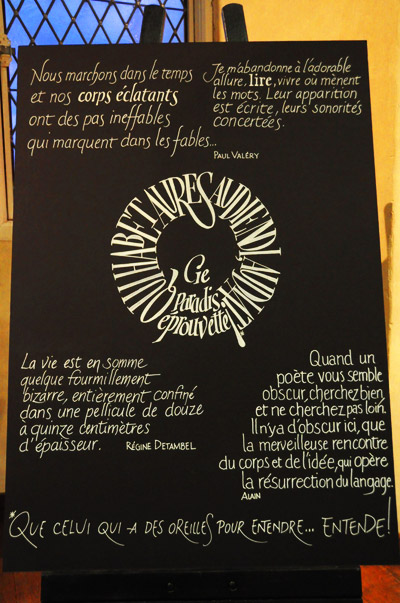 Nous marchons dans le temps
et nos corps éclatants
ont des pas ineffables
qui marquent dans les fables...
Je m'abandonne à l'adorable
allure, lire, vivre où mènent
les mots. Leur apparition
est écrite, leurs sonorités
concertées.
PAUL VALÉRY
QUI HABET AURES AUDIENDI, AUDIAT*
paradis
éprouvette
La vie est en somme
quelque fourmillement
bizarre, entièrement confiné
dans une pellicule de douze
à quinze centimètres
d'épaisseur.
RÉGINE DETAMBEL
Quand un
poète vous semble
obscur, cherchez bien,
et ne cherchez pas loin.
Il n'y a d'obscur ici, que
la merveilleuse rencontre
du corps et de l'idée, qui opère
la résurrection du langage.
ALAIN
*QUE CELUI QUI A DES OREILLES POUR ENTENDRE... ENTENDE!